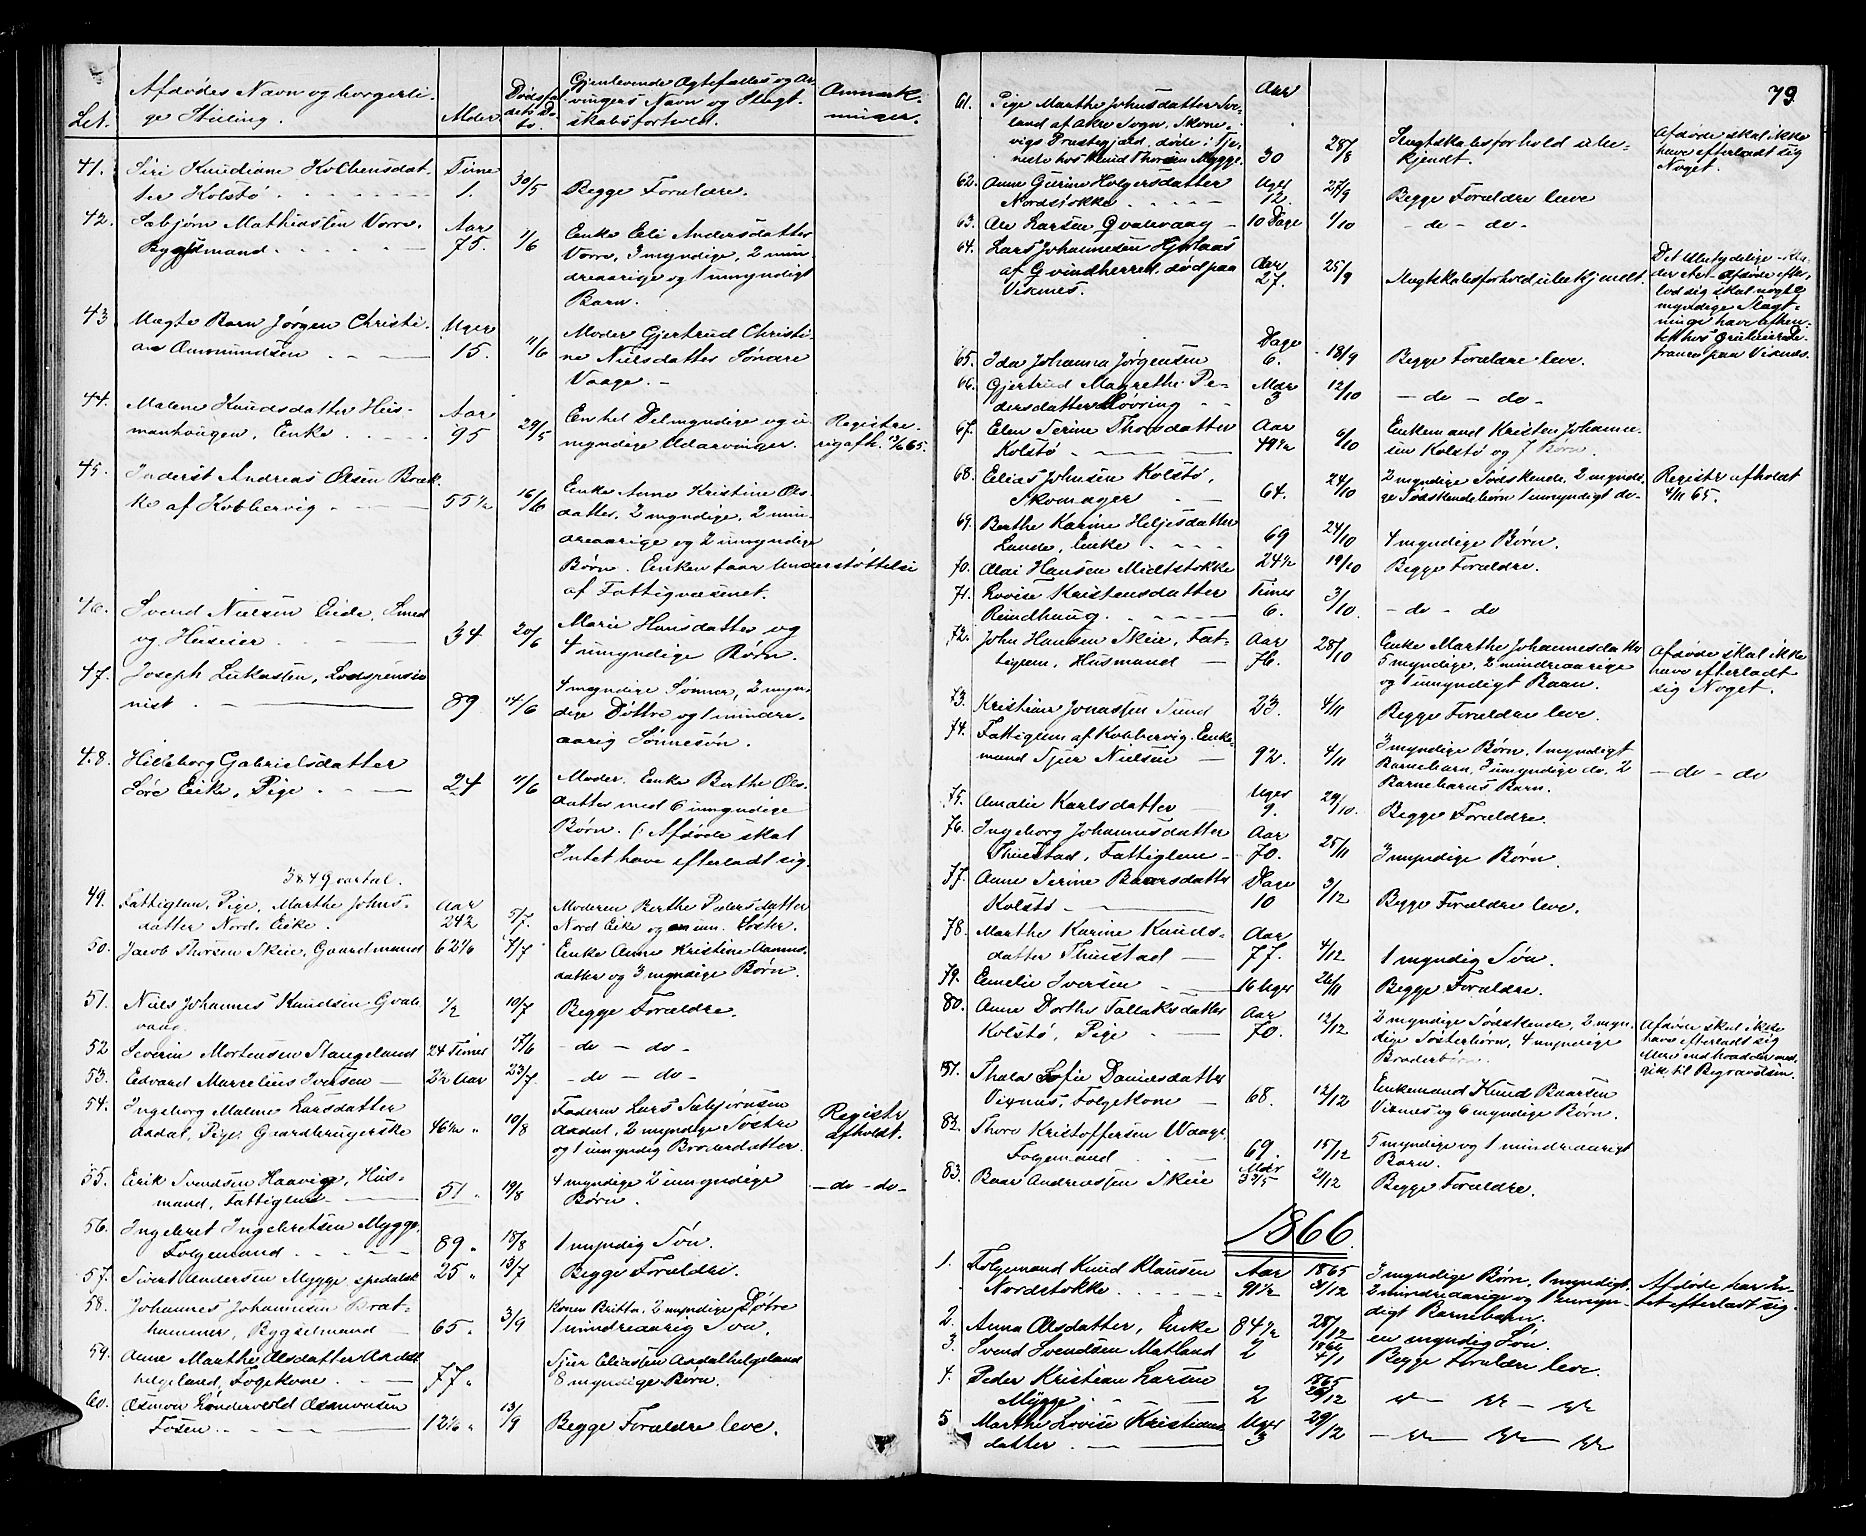 Afdødes Navn og borgerli-
ge Stilling.
Alder
Dødsfal-
dets Da-
to.
Gjenlevende Ægtefælles og Ar-
vingers Navn og Slægt-
skabsforhold.
Anmærk-
ninger.
41. Siri Knudiane Kolbensdat- Time
ter Kolstø 1. 30/5 Begge Forældre.
42. Sæbjørn Mathiassen Vorre Aar
Bygselmand 75. 1/6 Enke Eli Andersdatter
Vorre, 3 myndige, 2 min-
dreaarige og 1 umyndigt
Barn.
43 Uægte Barn Jørgen Christi- Uger
an Amundsen 15. 11/6 Moder Gjertrud Christi-
ne Nielsdatter Søndre
Vaage.
44. Malene Knudsdatter Hus- Aar
manhougen, Enke 95 29/5 Enkel Delmyndige og u-
myndige Udarvinger. Registre-
rig afh. 13/6 65.
45. Inderst Andreas Olsen Bræk-
ke af Kobbervig 55 1/2 16/6 Enke Anne Kristine Ols-
datter, 2 myndige, 2 min-
dreaarige og 2 umyndige
Børn. Enken faar Understøttelse
af Fattigvæsenet.
46. Svend Nielsen Eide, Smed
og Huseier 34 20/6 Marie Hansdatter og
4 umyndige Børn.
47. Joseph Lukassen, Lodspensio-
nist. 89 14/6 4 myndige Sønner, 2 myn-
dige Døttre og 1 mindre-
aarig Sønnesøn.
48. Hilleborg Gabrielsdatter
Søre Eike, Pige 24 11/6 Moder. Enke Berthe Ols-
datter med 6 umyndige
Børn. (: Afdøde skal
Intet have efterladt sig.
3 & 4 Qvartal.
49. Fattiglem, Pige, Marthe Johns- Aar
datter Nord Eike. 24 1/2 5/7. Moderen Berthe Pedersdatter
Nord Eike og en um. Søster.
50. Jacob Thorsen Skeie, Gaardmand 62 1/6 7/7 Enke Anne Kristine Mamus-
datter og 3 myndige Børn.
51. Niels Johannes Knudsen Qvale-
vaag. 1/2 10/7 Begge Forældre.
52 Severin Mortensen Stangeland 24 Timer 17/6 - do - do -
53. Edvard Marcelius Iversen 2 1/2 Aar 23/7 - do - do -
54. Ingeborg Malene Larsdatter
Aadal, Pige, Gaardbrugerske 46 1/2 " 10/8 Faderen Lars Sæbjørnsen
Aadal, 2 myndige Søstre
og 1 umyndig Broderdatter. Registr
afholdt.
55. Erik Svendsen Haavig, Hus-
mand, Fattiglem 51 " 19/8 4 myndige 2 umyndige
Børn. - do - do -
56. Ingebret Ingebretsen Mygge,
Folgemand 89 " 18/8 1 myndig Søn.
57. Sivert Andersen Mygge, spedalsk 25 " 13/7 Begge Forældre.
58. Johannes Johannesen Brat-
hammer, Bygselmand 65 " 3/9 Konen Britta, 2 myndige Døtre
1 mindreaarig Søn.
59. Anne Marthe Olsdatter Aadal-
helgeland, Fogekone 77 " Sjur Eliassen Aadalhelgeland
8 myndige Børn.
60. Osmon Sønderveld Osmonsen
Fosen 12 1/2 " 13/9 Begge Forældre leve.
79
61. Pige Marthe Johnsdatter Sve- Aar
land af Akre Sogn, Skone-
vigs Præstegjæld, døde i Tje-
neste hos Knud Thorsen Mygge 30 28/8 Slægtskabsforhold ube-
kjendt. Afdøde skal ikke
have efterladt sig
Noget.
62. Anne Gurine Holgersdatter Uger
Nordstokke 12. 27/9 Begge Forældre leve
63. Ole Larsen Qvalevaag 10 Dage 1/10 - do - do -
64. Lars Johannesen Hjelaas
af Qvindherred, død paa Aar
Vixnes. 27. 25/9 Slægtskabsforhold ubekjendt. Det Ubetydelige An-
der efter Afdøde efter-
lod sig skal nogle
myndige Slægt-
ninge have afhen-
tet hos Grubeier De-
france paa Vixnes.
65. Ida Johanna Jørgensen Dage
6. 18/9 Begge Forældre leve.
66. Gjertrud Magrethe Pe- Mdr
dersdatter Løvring 3 12/10 - do - do -
67. Elen Serine Thorsdatter Aar
Kolstø 49 1/2 6/10 Enkemand Kristen Johanne-
sen Kolstø og 7 Børn.
68. Elias Johnsen Kolstø,
Skomager 64. 24/10 2 myndige Sødskende, 2 myndi-
ge Sødskendebørn 1 umyndigt do - Registr afholdt
4/11 65.
69. Berthe Karine Heljesdatter
Lunde, Enke 69 24/10 4 myndige Børn.
70. Olai Hansen Midtstokke 24 1/2 19/10 Begge Forældre.
71. Lovise Kristensdatter Timer
Rundhaug 6. 3/10 - do - do
72. John Hansen Skeie, Fat- Aar
tiglem, Husmand 76. 28/10 Enke Marthe Johannesdatter
5 myndige, 2 mindreaarige
og 1 umyndigt Baan. Afdøde skal ikke
have efterladt
sig Noget.
73. Kristian Jonassen Sund 23. 4/11 Begge Forældre leve.
74. Fattiglem af Kobbervig Enke-
mand Sjur Nielsen 92. 4/11 3 myndige Børn, 1 myndigt
Barnebarn, 3 umyndige do, 2
Barnebarns Barn. - do - do
75. Amalie Karlsdatter Uger
9. 29/10. Begge Forældre.
76. Ingeborg Johannesdatter Aar
Thuestad, Fattiglem 70. 25/11 3 myndige Børn.
77. Anne Serine Baarsdatter Dage
Kolstø 10 3/12 Begge Forældre leve.
78. Marthe Karine Knuds- Aar
datter Thuestad 77. 4/12 1 myndig Søn.
79. Emelie Iversen 16 Uger 26/11 Begge Forældre.
80. Anne Dorthe Tallaksdatter Aar
Kolstø, Pige 70. 12/12 2 myndige Sødskende, 2 myn-
dige Søsterbørn, 4 myndige
Broderbørn. Afdøde skal ikke
have efterladt sig
Mere end hvad der med-
gik til Begravelsen.
81. Thala Sofie Danielsdatter
Vixnes, Folgekone 68. 12/12 Enkemand Knud Baarsen
Vixnes og 6 myndige Børn.
82. Thore Kristoffersen Waage
Folgemand 69. 15/12 5 myndige og 1 mindreaarigt
Barn.
83. Baar Andreassen Skeie Mdr
3 2/5 21/12 Begge Forældre.
1866.
1. Folgemand Knud Klausen Aar 1865
Nordstokke 91 1/2 21/12 3 myndige Børn, 1 myndigt,
2 mindreaarige og 1 umyn-
digt Barnebarn. Afdøde har In-
tet efterladt sig.
2. Anna Olsdatter, Enke 84 1/2 28/12 en myndig Søn.
3. Svend Svendsen Matland 2 1866
4/1 Begge Forældre leve.
4. Peder Kristian Larsen 1865
Mygge 2 26/12 do - do - do
5 Marthe Lovise Kristians- Uger
datter 3 29/12 - do - do - do